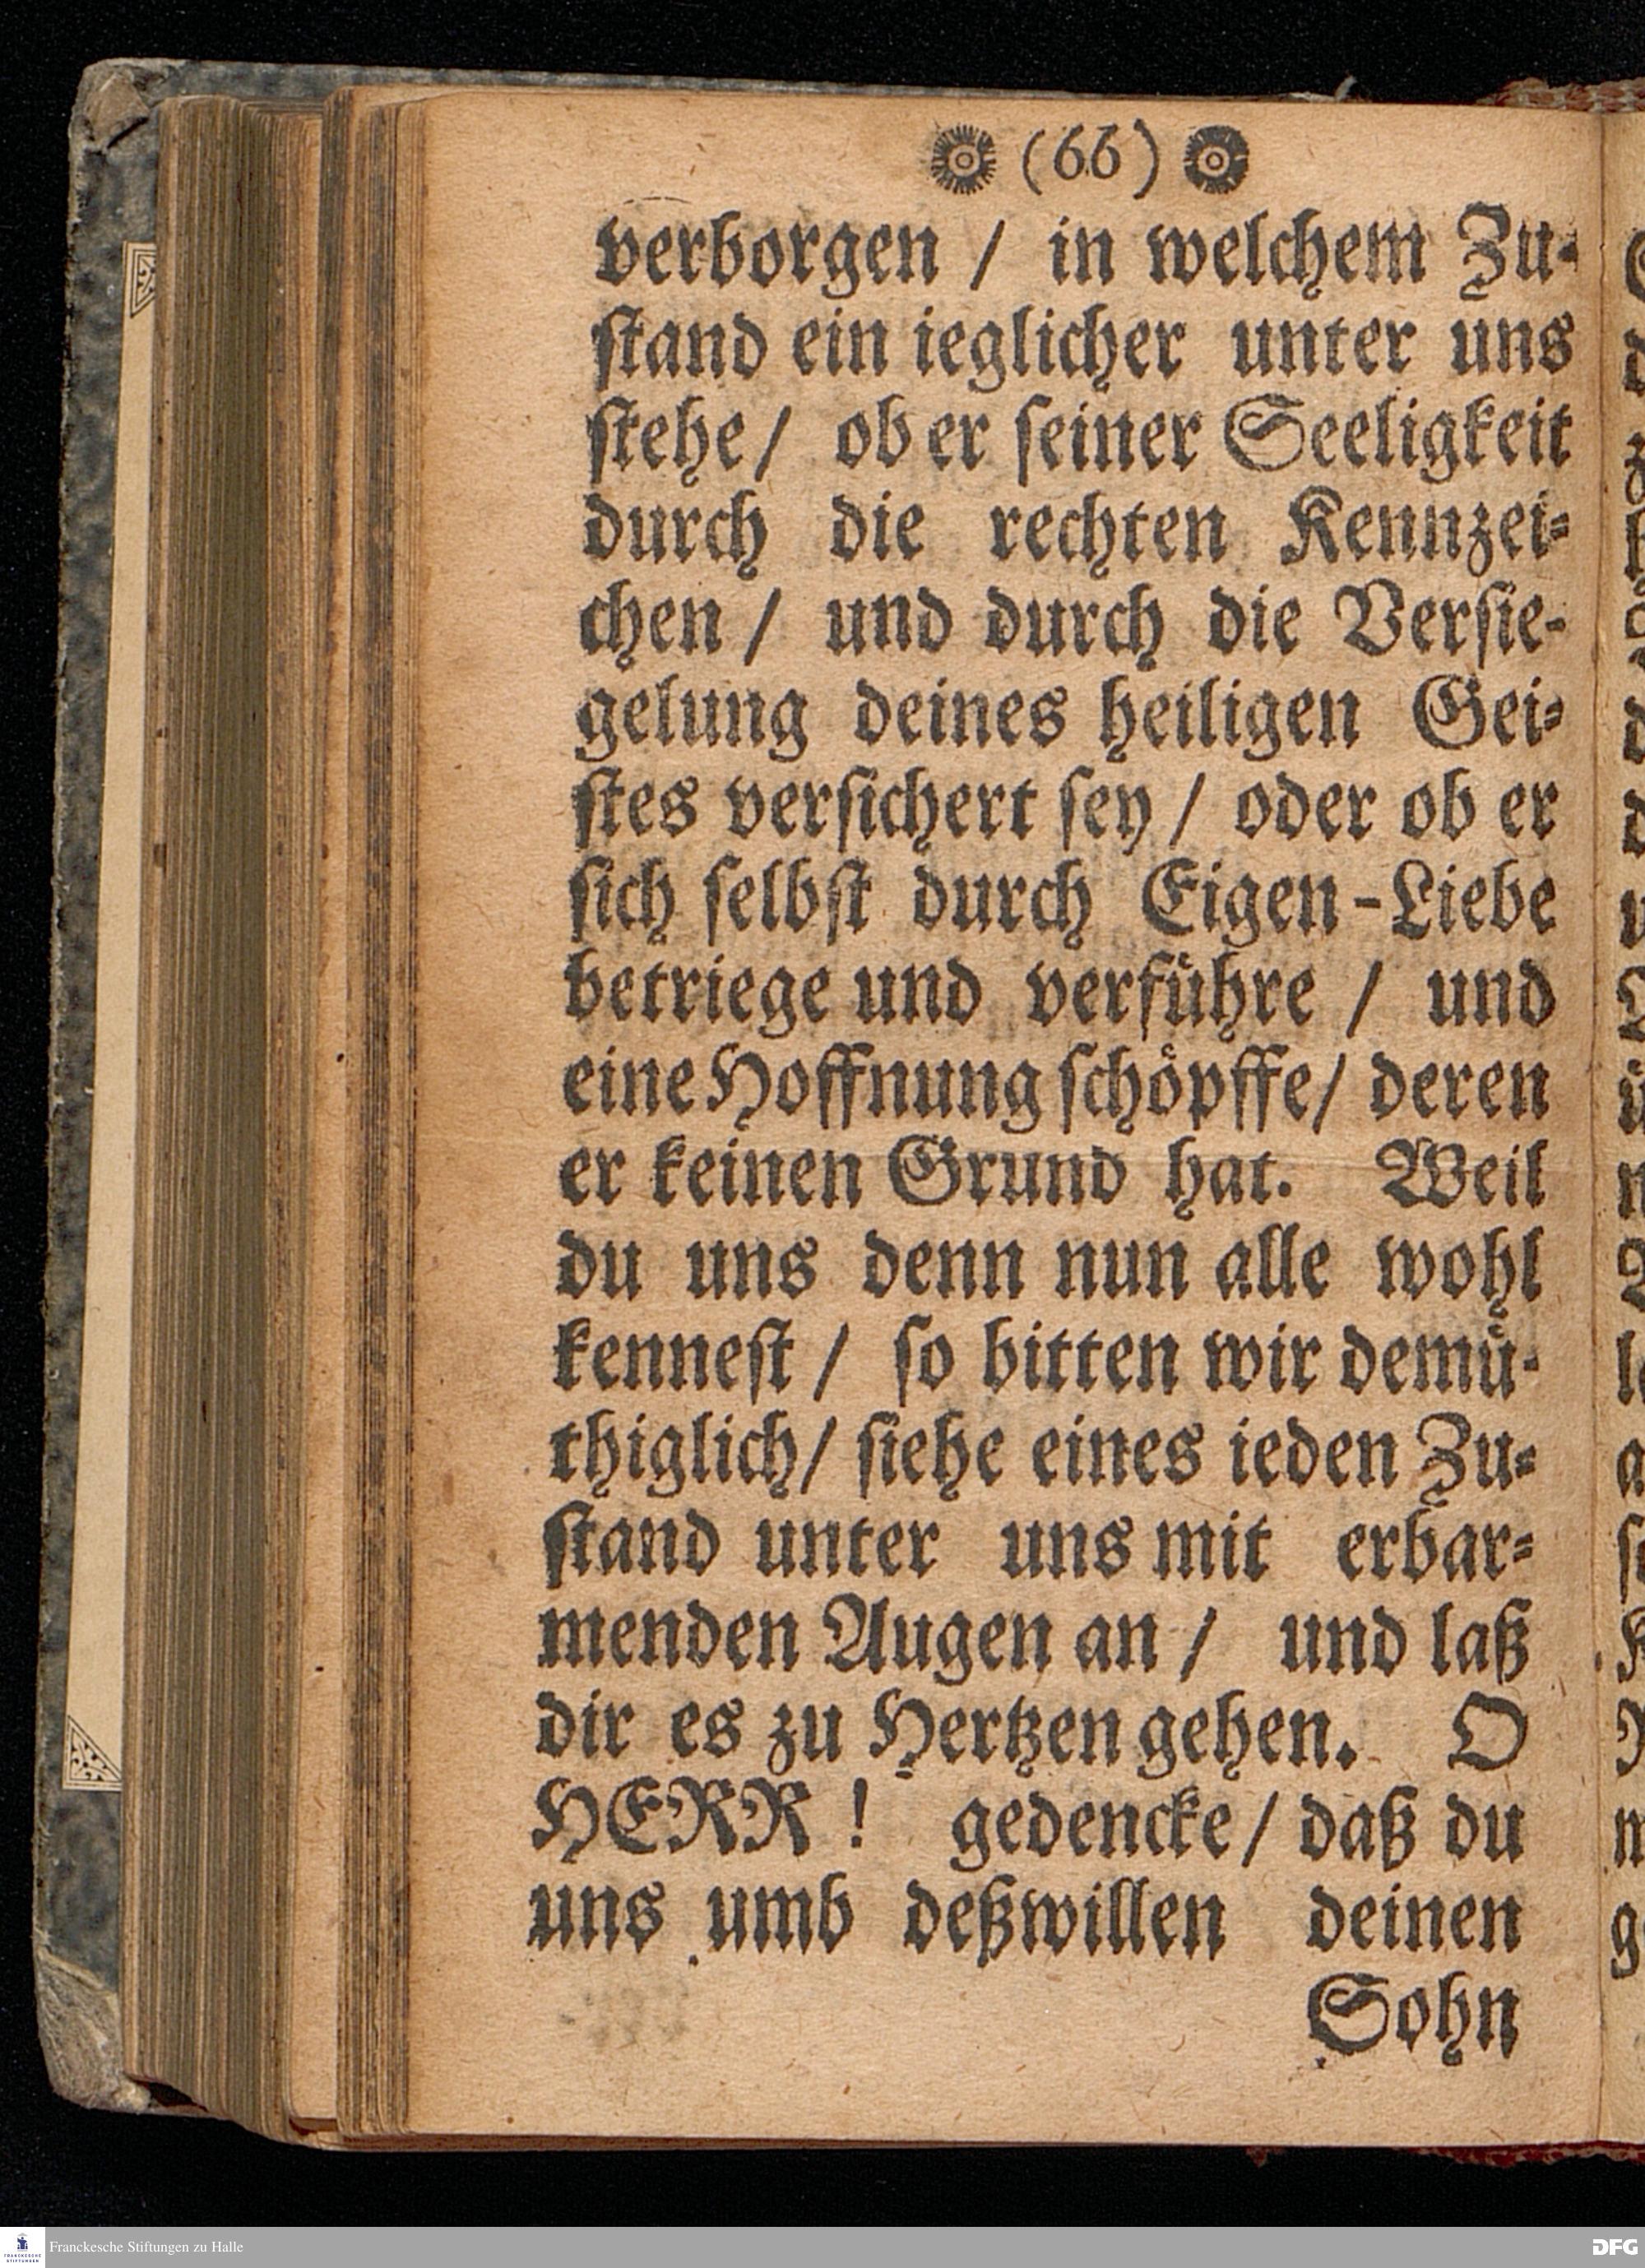 (66)
verborgen / in welchem Zu-
ſtand ein ieglicher unter uns
ſtehe / ob er ſeiner Seeligkeit
durch die rechten Kennzei-
chen / und durch die Verſie-
gelung deines heiligen Gei-
ſtes verſichert ſey / oder ob er
ſich ſelbſt durch Eigen-Liebe
betriege und verfuͤhre / und
eine Hoffnung ſchoͤpffe / deren
er keinen Grund hat. Weil
du uns denn nun alle wohl
kenneſt / ſo bitten wir demuͤ-
thiglich / ſiehe eines ieden Zu-
ſtand unter uns mit erbar-
menden Augen an / und laß
dir es zu Hertzen gehen. O
HERR ! gedencke / daß du
uns umb deßwillen deinen
Sohn
Franckesche Stiftungen zu Halle
DFG